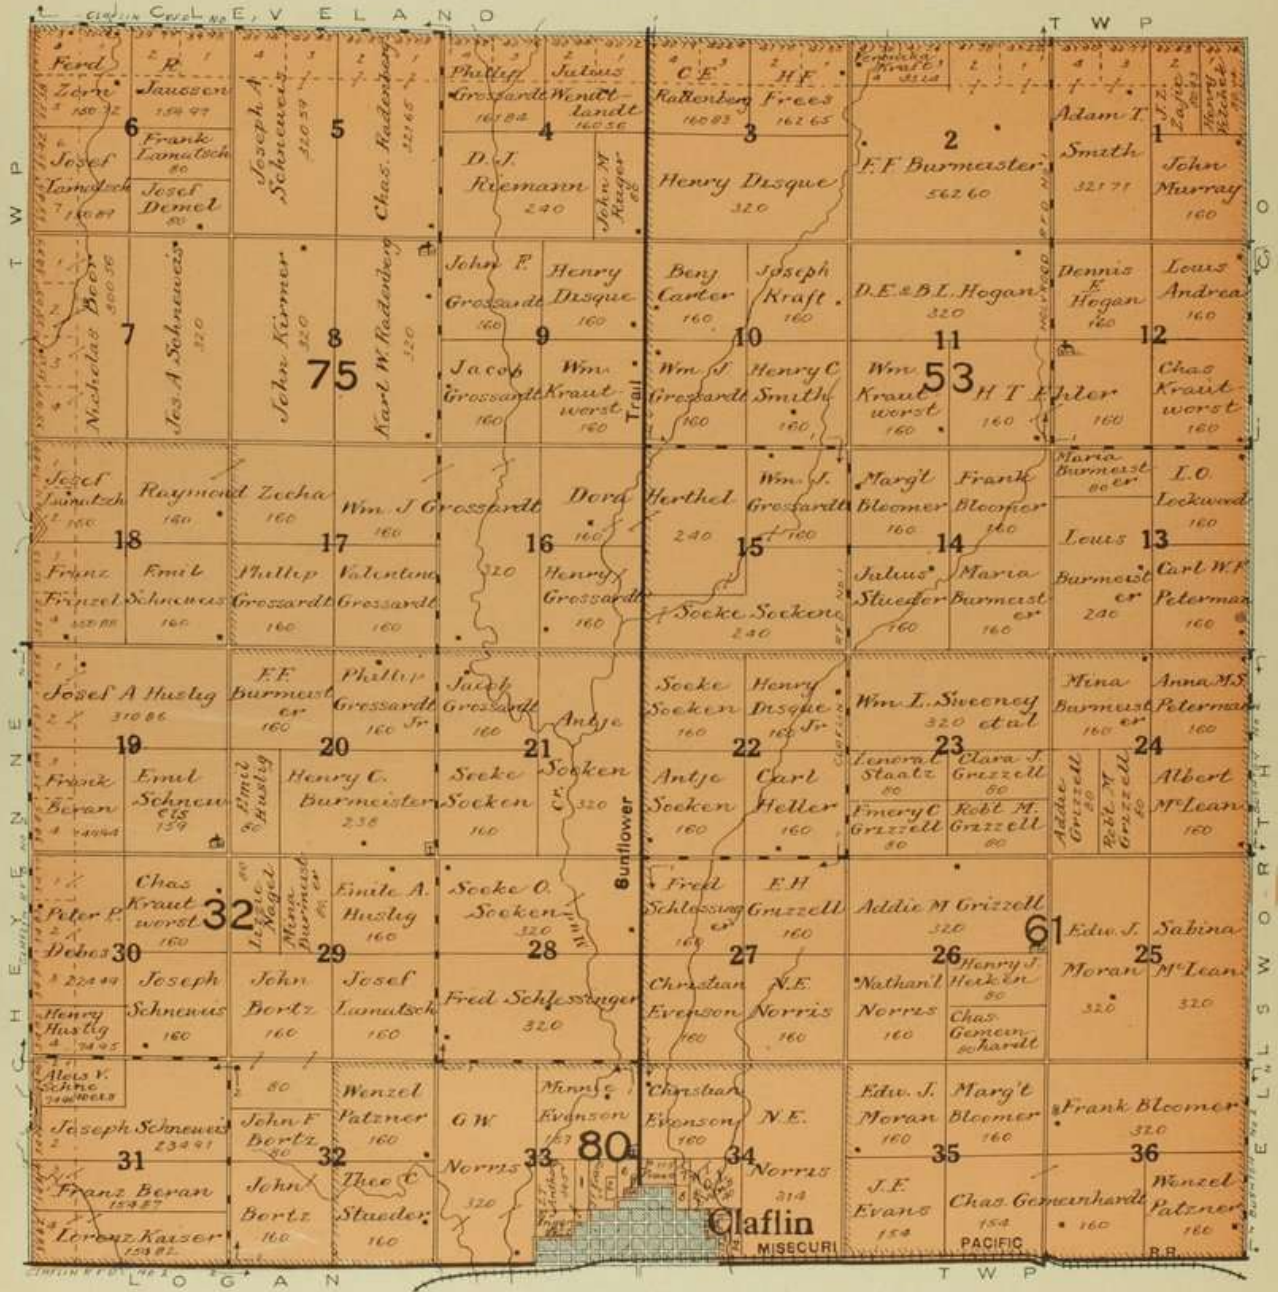 CLEVELAND TWP
TWP
CHEYENNE
ELLSWORTH CO
LOGAN TWP
Ferd
Zorn
R
Janssen
154 97
6
Frank
Lamatsch
80
Josef
Lamatsch
Josef
Demel
80
Joseph A
Schneweis
320 59
5
Chas. Radenberg
321 65
Phillip
Grossardt
161 84
Julius
Wendt-
landt
160 56
4
D. J.
Riemann
240
John M
Ruger
80
C E
Radenberg
160 83
H F
Frees
162 65
3
Henry Disque
320
Kraft
2
F. F Burmeister
562 60
Adam T.
Smith
321 71
1
J. L.
Zajic
Henry
John
Murray
160
Nicholas Boor
300 56
7
Jos. A Schneweis
320
John Kirmer
320
8
75
Karl W. Radenberg
320
John F.
Grossardt
160
Henry
Disque
160
9
Jacob
Grossardt
160
Wm.
Kraut
worst
160
Trail
Benj
Carter
160
Joseph
Kraft
160
10
Wm. J.
Grossardt
160
Henry C
Smith
160
D. E. & B. L. Hogan
320
11
Wm.
Kraut
worst
160
53
H T Ehler
160
160
Dennis
E
Hogan
160
Louis
Andrea
160
12
Chas
Kraut-
worst
160
Josef
Lamatsch
160
Raymond Zecha
160
160
18
Franz
Frinzel
Emil
Schneweis
160
Wm. J Grossardt
160
320
17
Phillip
Grossardt
160
Valentine
Grossardt
160
16
Dora Herthel
160
240
Henry
Grossardt
160
Wm. J.
Grossardt
160
15
Soeke Soeken
240
Marg't
Bloomer
160
Frank
Bloomer
160
14
Julius
Stueder
160
Maria
Burmeist
er
160
Maria
Burmeist
er
80
L. O.
Lockwood
160
Louis
Burmeist
er
240
13
Carl W. F.
Peterman
160
Josef A Huslig
310 86
19
Frank
Beran
Emil
Schnew
eis
159
F. F.
Burmeist
er
160
Phillip
Grossardt
Jr
160
20
Emil
Huslig
80
Henry C.
Burmeister
238
Jacob
Grossardt
160
21
Antje
Soeken
320
Soeke
Soeken
160
Cr.
Sunflower
Soeke
Soeken
160
Henry
Disque
Jr
160
22
Antje
Soeken
160
Carl
Heller
160
Wm. L. Sweeney
320 et al
23
Lenoral
Staatz
80
Clara J.
Grizzell
80
Emery C
Grizzell
80
Robt M.
Grizzell
80
Mina
Burmeist
er
160
Anna M. S.
Peterman
160
24
Addie
Grizzell
80
Robt M
Grizzell
80
Albert
McLean
160
Peter P.
Debes
224 49
Chas
Kraut
worst
160
32
30
Joseph
Schneweis
160
Henry
Huslig
74 95
Lizzie
Nagel
80
Mina
Burmeist
er
80
Emile A.
Huslig
160
29
John
Bortz
160
Josef
Lamatsch
160
Soeke O.
Soeken
320
Mud
28
Fred Schlessinger
320
Fred
Schlessing
er
160
E H
Grizzell
160
27
Christian
Evenson
160
N. E.
Norris
160
Addie M Grizzell
320
61
26
Nathan'l
Norris
160
Henry J.
Heiken
80
Chas.
Gemein-
hardt
80
Edw. J.
Moran
320
25
Sabina
McLean
320
Alois V.
Schne
weis
Joseph Schneweis
234 91
31
Franz Beran
154 87
Lorenz Kaiser
154 82
80
John F
Bortz
80
Wenzel
Patzner
160
32
John
Bortz
160
Theo C
Stueder
160
G W
Norris
320
Minnie
Evenson
157
33
80
Christian
Evenson
160
34
N. E.
Norris
314
Claflin
Edw. J.
Moran
160
Marg't
Bloomer
160
35
J. F.
Evans
154
Chas. Gemeinhardt
154
160
Frank Bloomer
320
36
Wenzel
Patzner
160
MISSOURI PACIFIC R.R.